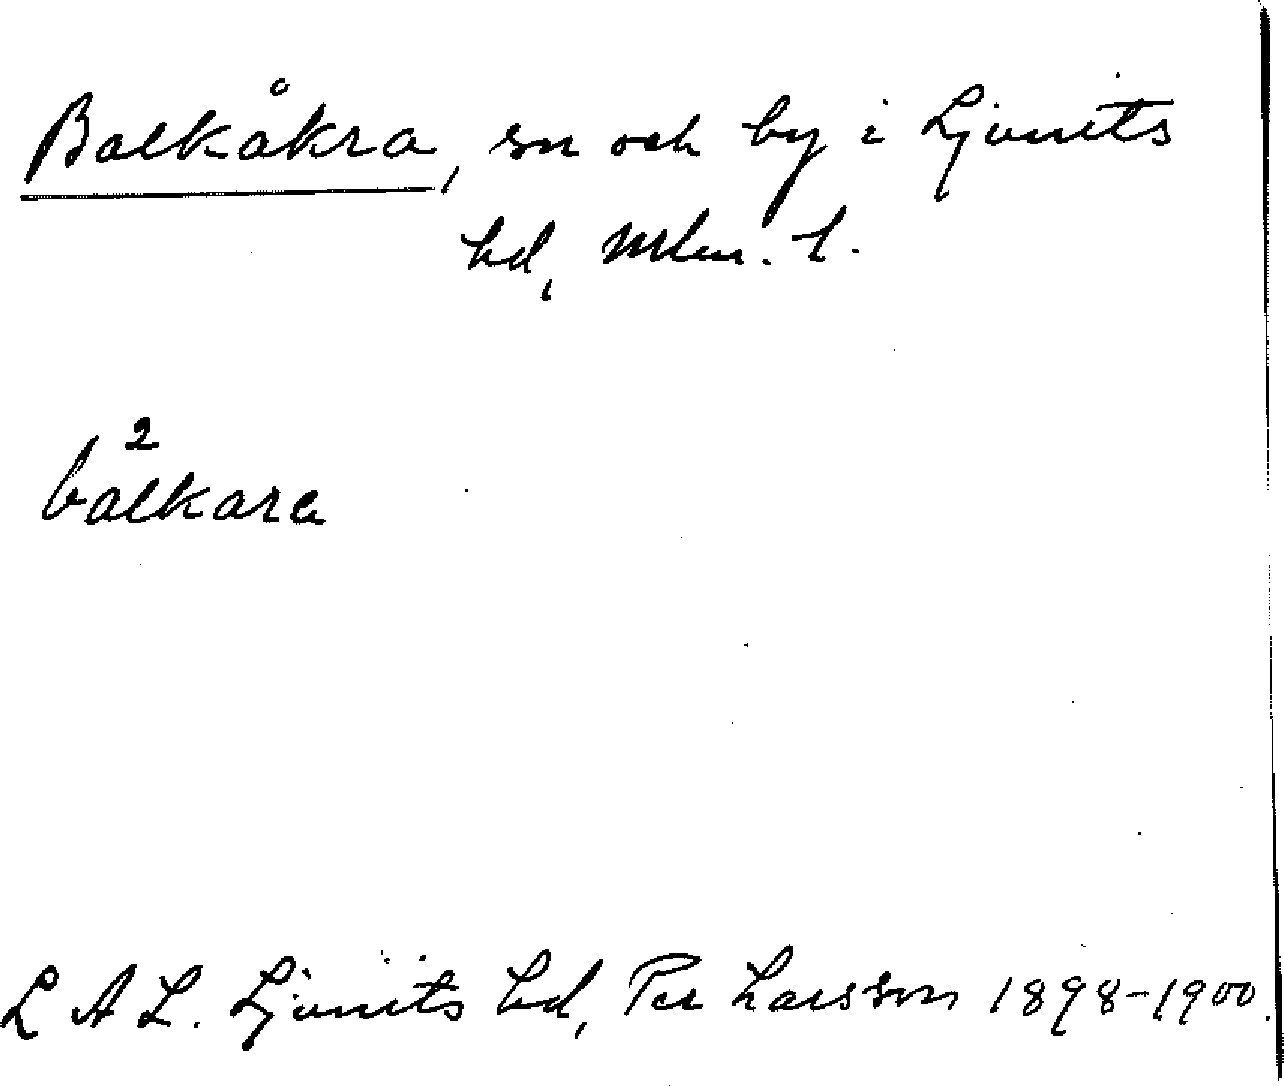 Balkåkra, sn och by i Ljunits
hd, Mlm. l.
2
balkara
L A L. Ljunits hd, Per Larsson 1898-1900.